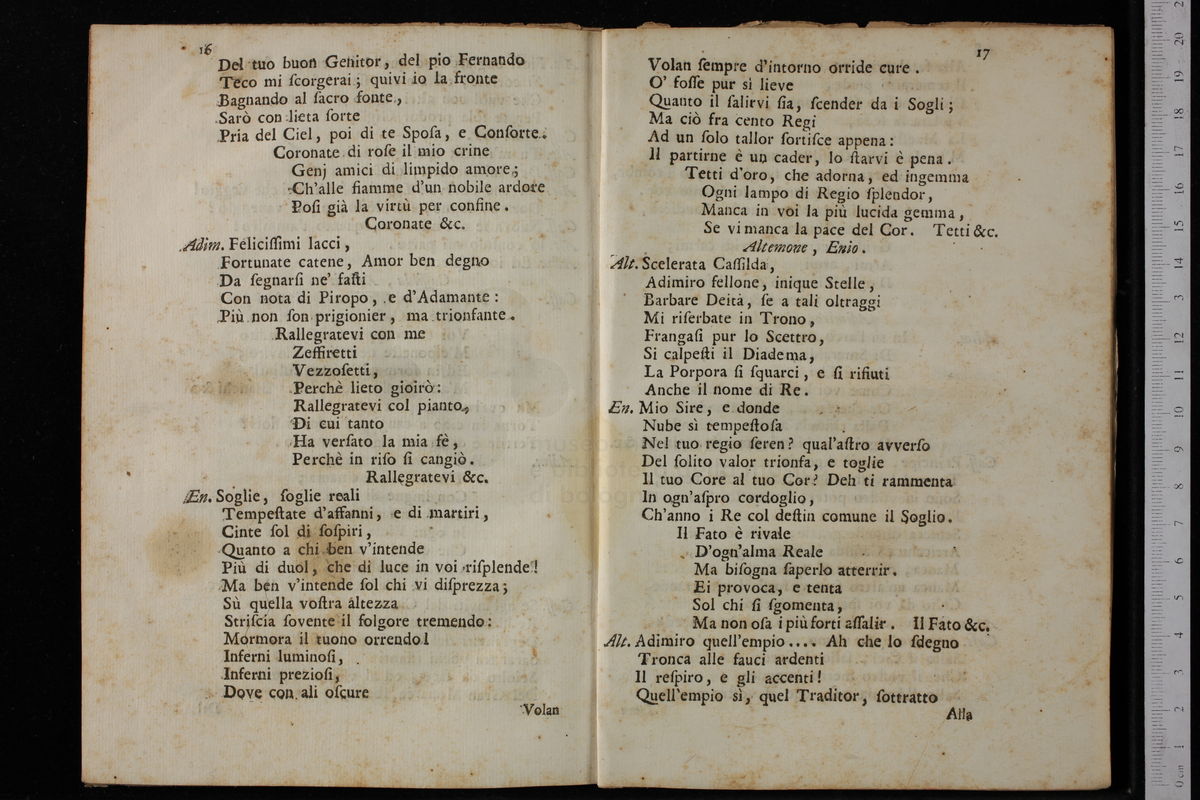 16
Del tuo buon Genitor, del pio Fernando
Teco mi ſcorgerai; quivi io la fronte
Bagnando al ſacro fonte,
Sarò con lieta ſorte
Pria del Ciel, poi di te Spoſa, e Conſorte.
Coronate di roſe il mio crine
Genj amici di limpido amore;
Ch'alle fiamme d'un nobile ardore
Poſi già la virtù per confine.
Coronate &c.
Adim. Feliciſſimi lacci,
Fortunate catene, Amor ben degno
Da ſegnarſi ne' faſti
Con nota di Piropo, e d'Adamante:
Più non ſon prigionier, ma trionfante.
Rallegratevi con me
Zeffiretti
Vezzoſetti,
Perchè lieto gioirò:
Rallegratevi col pianto,
Di cui tanto
Ha verſato la mia fè,
Perchè in riſo ſi cangiò.
Rallegratevi &c.
En. Soglie, ſoglie reali
Tempeſtate d'affanni, e di martiri,
Cinte ſol di ſoſpiri,
Quanto a chi ben v'intende
Più di duol, che di luce in voi riſplende!
Ma ben v'intende ſol chi vi diſprezza;
Sù quella voſtra altezza
Striſcia ſovente il folgore tremendo:
Mormora il tuono orrendo!
Inferni luminoſi,
Inferni prezioſi,
Dove con ali oſcure
Volan
17
Volan ſempre d'intorno orride cure.
O' foſſe pur sì lieve
Quanto il ſalirvi ſia, ſcender da i Sogli;
Ma ciò fra cento Regi
Ad un ſolo tallor ſortiſce appena:
Il partirne è un cader, lo ſtarvi è pena.
Tetti d'oro, che adorna, ed ingemma
Ogni lampo di Regio ſplendor,
Manca in voi la più lucida gemma,
Se vi manca la pace del Cor. Tetti &c.
Altemone, Enio.
Alt. Scelerata Caſſilda,
Adimiro fellone, inique Stelle,
Barbare Deità, ſe a tali oltraggi
Mi riſerbate in Trono,
Frangaſi pur lo Scettro,
Si calpeſti il Diadema,
La Porpora ſi ſquarci, e ſi rifiuti
Anche il nome di Re.
En. Mio Sire, e donde
Nube sì tempeſtoſa
Nel tuo regio ſeren? qual'aſtro avverſo
Del ſolito valor trionfa, e toglie
Il tuo Core al tuo Cor? Deh ti rammenta
In ogn'aſpro cordoglio,
Ch'anno i Re col deſtin comune il Soglio.
Il Fato è rivale
D'ogn'alma Reale
Ma biſogna ſaperlo atterrir.
Ei provoca, e tenta
Sol chi ſi ſgomenta,
Ma non oſa i più forti aſſalir. Il Fato &c.
Alt. Adimiro quell'empio.... Ah che lo ſdegno
Tronca alle fauci ardenti
Il reſpiro, e gli accenti!
Quell'empio sì, quel Traditor, ſottratto
Alla